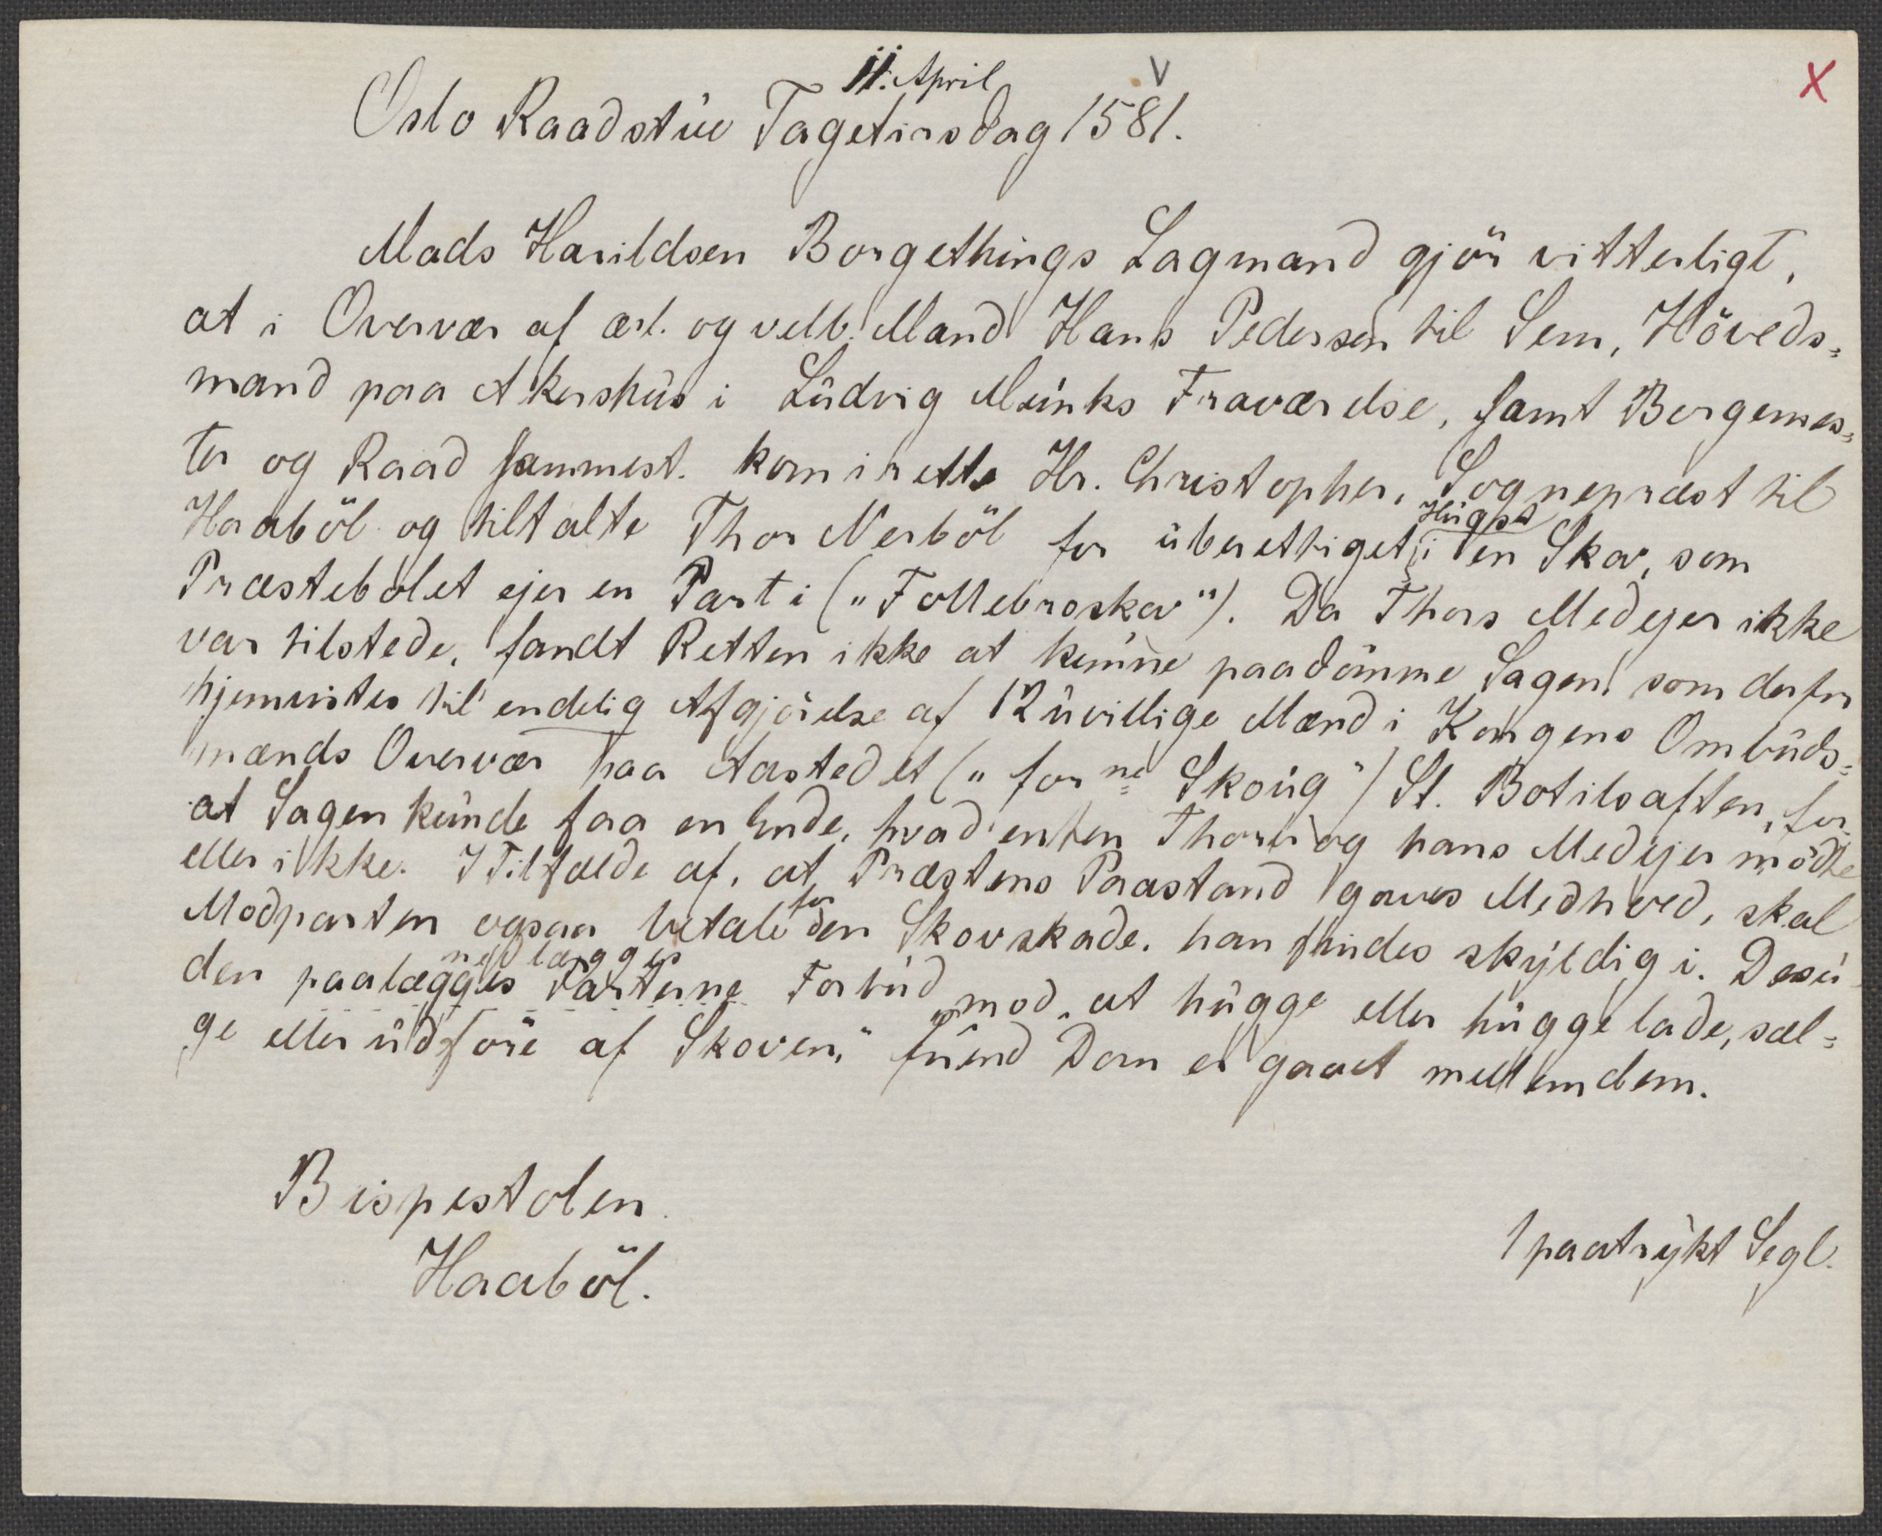 11. April
V
X
Oslo Raadstue Tagetirsdag 1581.
Mads Harildsen Borgethings Lagmand gjör vitterligt,
at i Overvær af ærl. og velb. Mand Hans Pedersen til Sem, Höveds=
mand paa Akershus i Ludvig Munks Fraværelse, samt Borgemes=
ter og Raad sammest. kom irette Hr. Christopher, Sognepræst til
Haaböl og tiltalte Thor Nerböl for uberettiget Hugst i en Skov, som
Præstebolet ejer en Part i („Follebroskov"). Da Thors Medejer ikke
var tilstede, fandt Retten ikke at kunne paadömme Sagen, som derfor
hjemvistes til endelig Afgjörelse af 12 uvillige Mænd i Kongens Ombuds=
mænds Overvær paa Aastedet („forne Skoug") St. Botilsaften, for
at Sagen kunde faa en Ende, hvad enten Thor og hans Medejer mödte
eller ikke. I Tilfælde af, at Præstens Paastand gaves Medhold, skal
Modparten ogsaa betale for den Skovskade, han findes skyldig i. Desu
nedlægges
den paalægges Parterne Forbud mod „at hugge eller hugge lade, sæl=
ge eller udföre af Skoven," förend Dom er gaaet mellem dem.
Bispestolen
Haaböl.
1 paatrykt Segl.